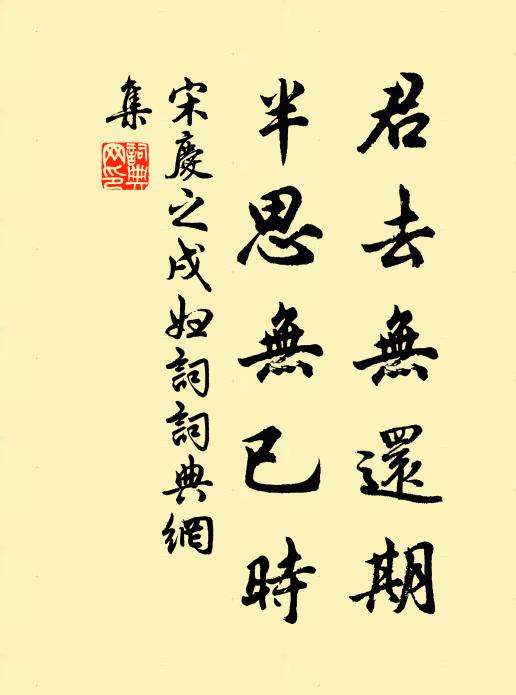 君去無還期
半思無已時
宋慶之戍妇詞詞典網
集
詞典网印